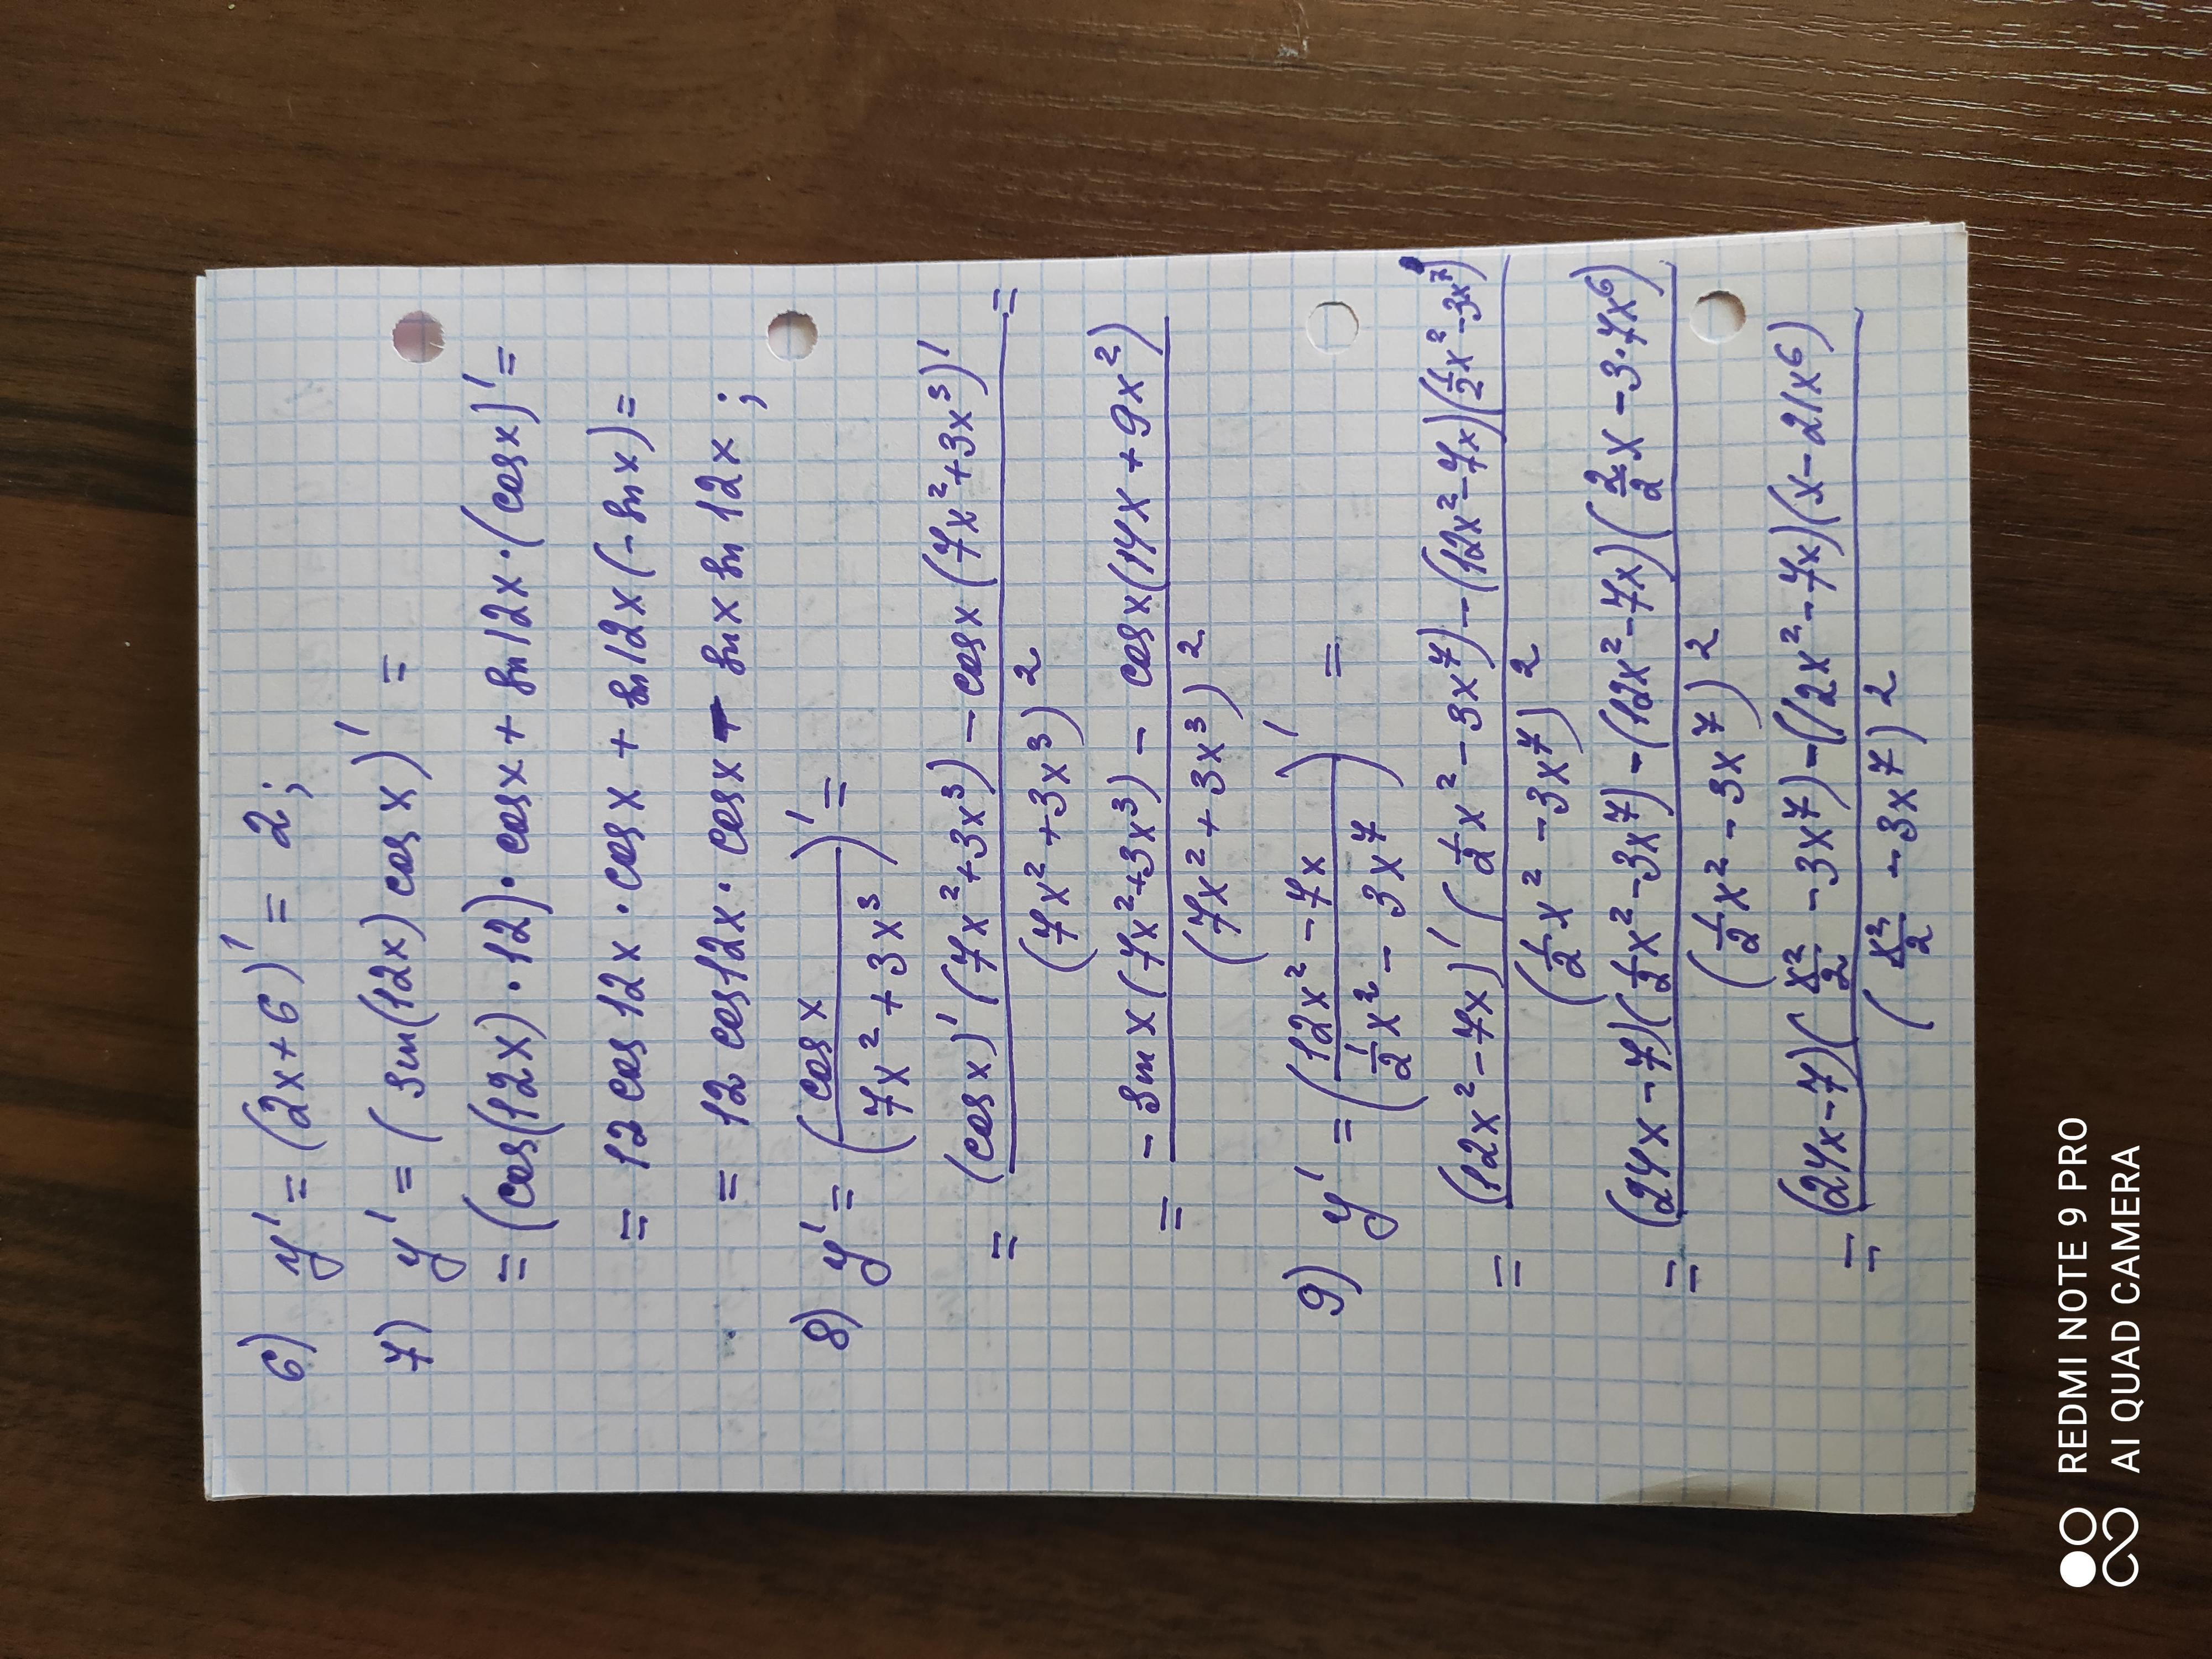 6) y' = (2x+6)' = 2;
7) y' = (sin(12x) cos x)' =
= (cos(12x)·12)·cos x + sin 12x·(cos x)' =
= 12 cos 12x · cos x + sin 12x (- sin x) =
= 12 cos 12x · cos x - sin x sin 12x ;
8) y' = (cos x / (7x² + 3x³))' =
= ((cos x)' (7x² + 3x³) - cos x (7x² + 3x³)') / (7x² + 3x³)² =
= (- sin x (7x² + 3x³) - cos x (14x + 9x²)) / (7x² + 3x³)²
9) y' = ((12x² - 7x) / (1/2 x² - 3x⁷))' =
= ((12x² - 7x)' (1/2 x² - 3x⁷) - (12x² - 7x)(1/2 x² - 3x⁷)') / (1/2 x² - 3x⁷)²
= ((24x - 7)(1/2 x² - 3x⁷) - (12x² - 7x)(2/2 x - 3·7x⁶)) / (1/2 x² - 3x⁷)²
= ((24x - 7)(x²/2 - 3x⁷) - (12x² - 7x)(x - 21x⁶)) / (x²/2 - 3x⁷)²
REDMI NOTE 9 PRO
AI QUAD CAMERA